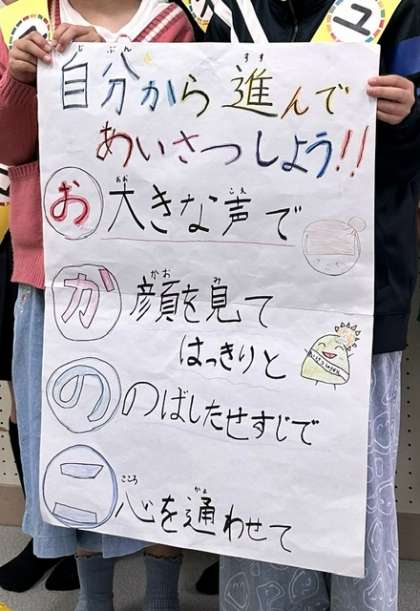 自分から進んで
あいさつしよう!!
お 大きな声で
か 顔を見て
はっきりと
の のばしたせすじで
こ 心を通わせて